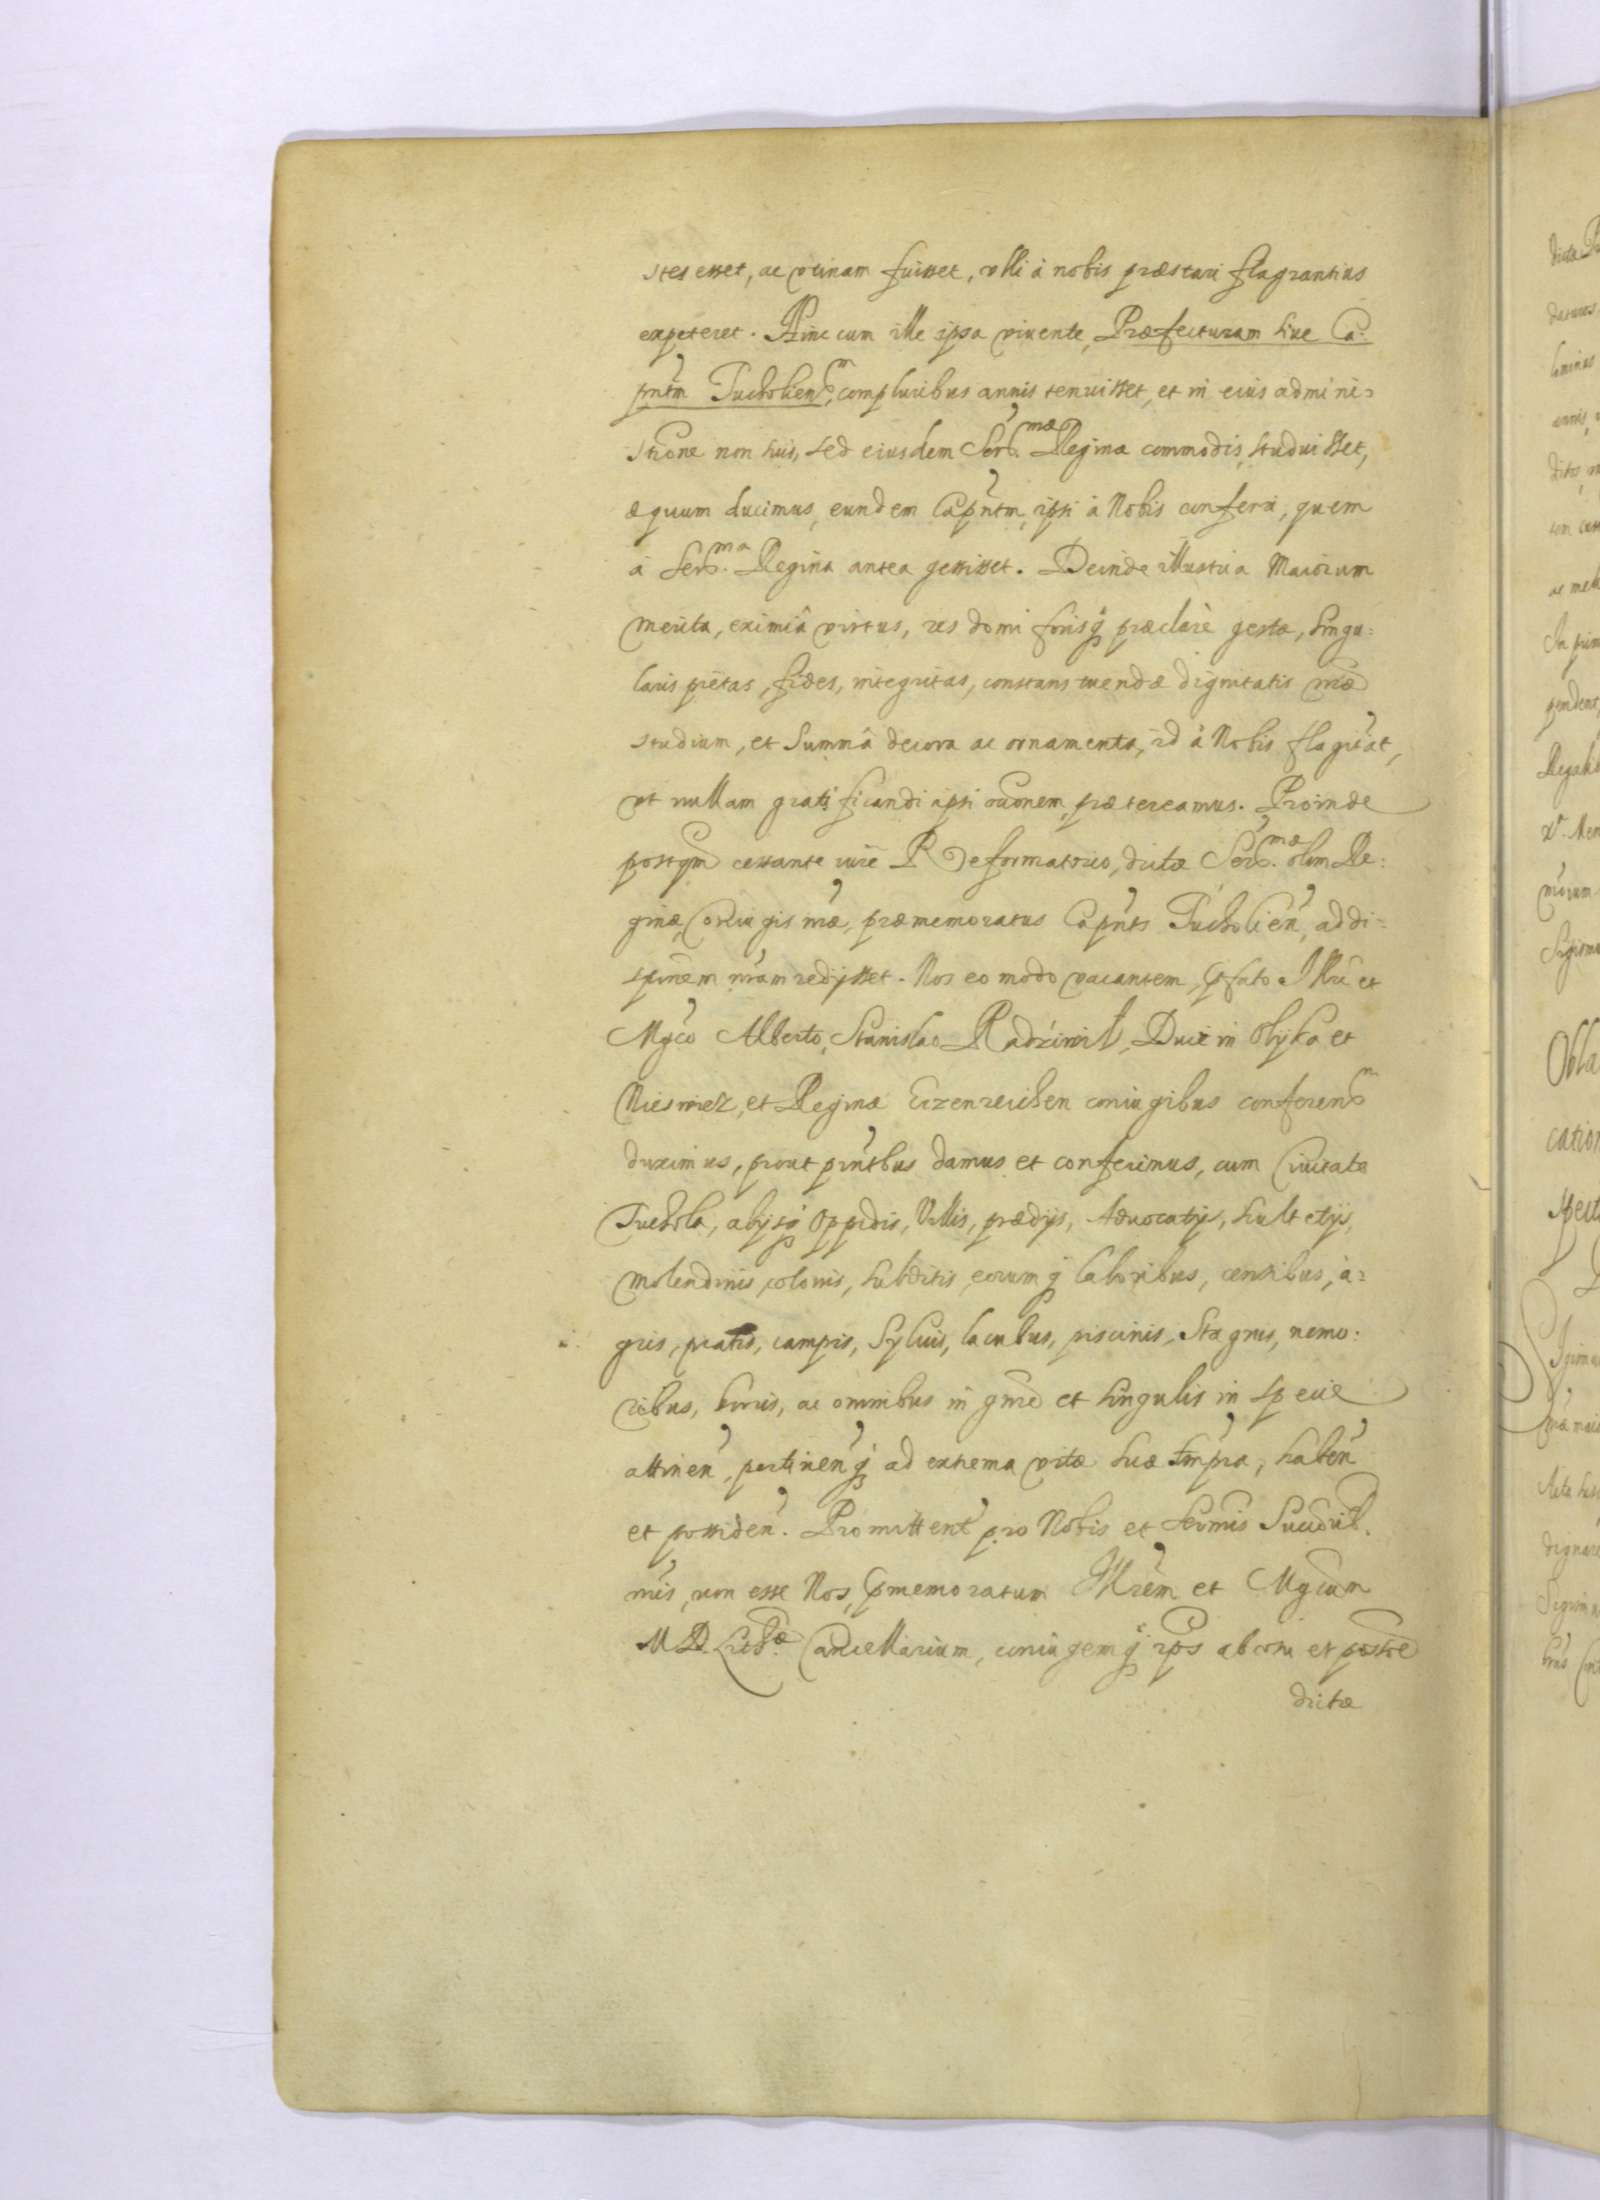 stes esset, ac vtinam fuisset, vlli à nobis præstari flagrantius
expeteret. Hinc cum ille ipsa viuente, Præfecturam siue Ca:
pntm Tucholien̄m, compluribus annis tenuisset, et in eius admini=
strōne non suis, sed eiusdem Serēn.mæ Reginæ commodis, studuisset,
æquum ducimus, eundem Capnt̄m, ipsi à Nobis conferri, quem
à Serēn.ma Regina antea gessisset. Deinde illustria Maiorum
merita, eximiâ virtus, res domi forisq præclarè gestæ, singu:
laris pietas, fides, integritas, constans tuendæ dignitatis nr̄æ
studium, et Summâ decora ac ornamenta, id à Nobis flagitat,
vt nullam gratificandi ipsi rāōnem prætereamus. Proinde
postqm̄ cessante iure Reformatorio, dictæ Serēn.mæ olim Re:
ginæ, Coniugis nr̄æ, præmemoratus Capnt̄s Tucholien̄, ad di=
spn̄em nr̄am redijsset. Nos eo modo vacantem, p̄fato Illri et
Mgco Alberto, Stanislao Radziwil, Duci in Olyka et
Nieswież, et Reginæ Eizenreichen coniugibus conferen̄m
duximus, prout pn̄tbus damus et conferimus, cum Ciuitate
Tuchola, alijsq Oppidis, Villis, prædijs, Aduocatijs, Scultetijs,
molendinis, colonis, subditis, eorumq laboribus, censibus, a=
gris, pratis, campis, Syluis, lacubus, piscinis, Stagnis, nemo:
ribus, horris, ac omnibus in gn̄re et singulis in specie
attinen̄, pertinen̄q ad extrema vitæ suæ tmpra, haben̄
et possiden̄. Promitten̄t pro Nobis et Sermis Succorib.
nr̄is, non esse Nos, p̄memoratum Illrem et Mgcum
M D Lith.æ Cancellarium, coniugemq ip̄s ab omi et postre
dictæ